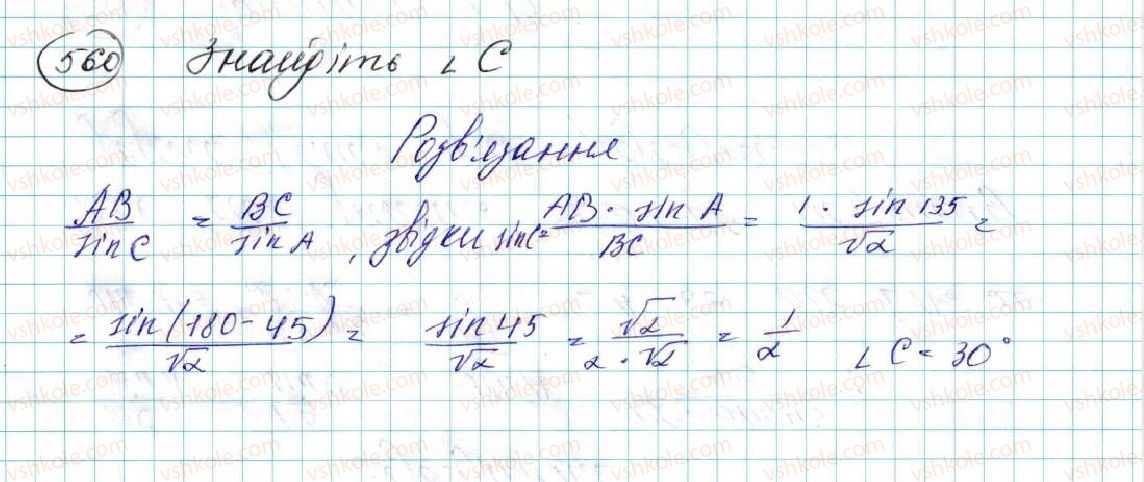 560 Знайдіть ∠ C
Розв'язання
AB/sin C = BC/sin A, звідки sin C = AB · sin A/BC = 1 · sin 135/√2 =
= sin(180 - 45)/√2 = sin 45/√2 = √2/2 · √2 = 1/2 ∠ C = 30°